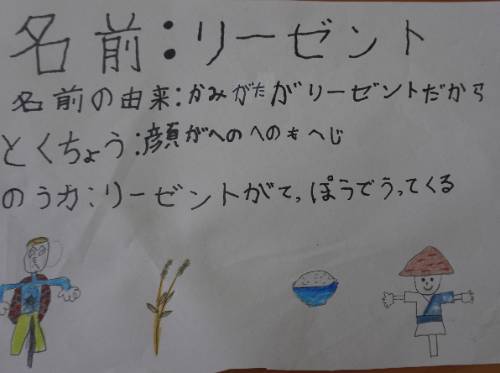 名前:リーゼント
名前の由来:かみがたがリーゼントだから
とくちょう:顔がへのへのもへじ
のう力:リーゼントがてっぽうでうってくる